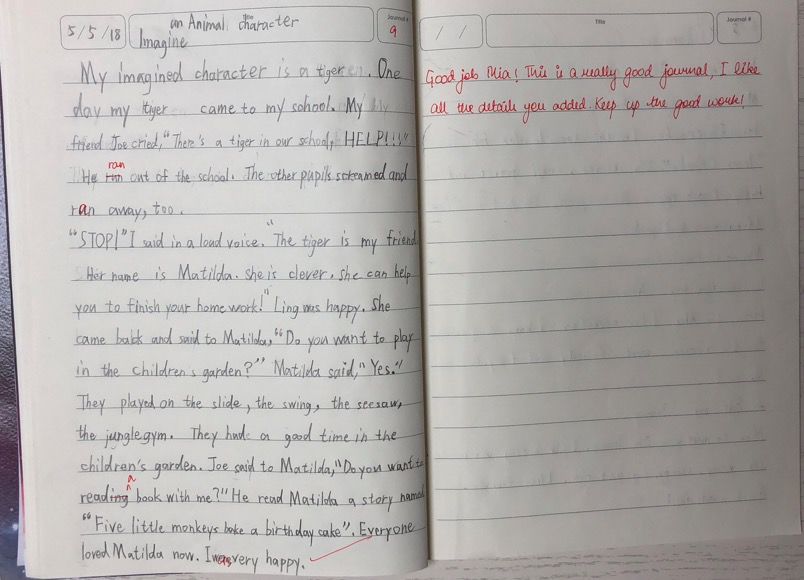 5/5/18
Title
an Animal character
Imagine
Journal #
9
My imagined character is a tiger. One
day my tiger came to my school. My
friend Joe cried, "There's a tiger in our school, HELP!!!"
ran
He run out of the school. The other pupils screamed and
ran away, too.
"STOP!" I said in a loud voice. "The tiger is my friend
Her name is Matilda. She is clever. She can help
you to finish your homework!" Ling was happy. She
came back and said to Matilda, "Do you want to play
in the children's garden?" Matilda said, "Yes."
They played on the slide, the swing, the seesaw,
the junglegym. They had a good time in the
children's garden. Joe said to Matilda, "Do you want to
a
reading book with me?" He read Matilda a story named
"Five little monkeys bake a birthday cake". Everyone
loved Matilda now. I was very happy.
/ /
Title
Journal #
Good job Mia! This is a really good journal, I like
all the details you added. Keep up the good work!